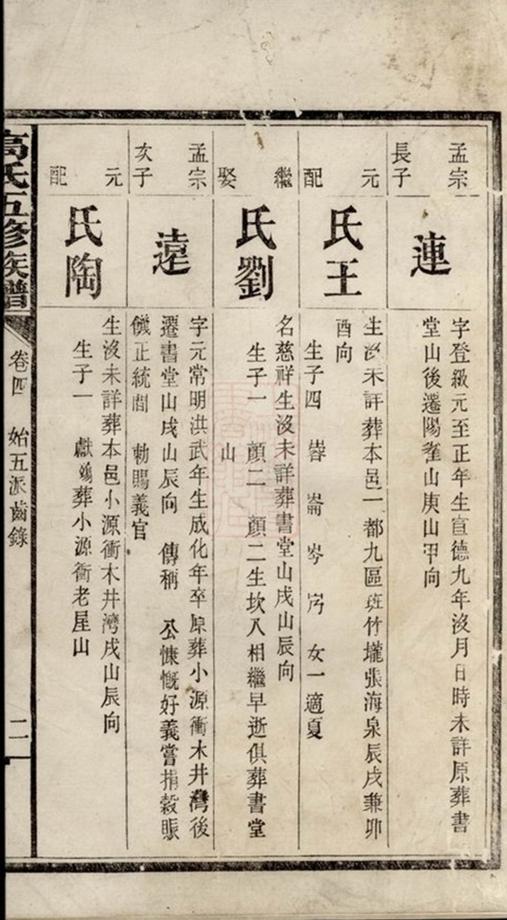 孟宗
長子
連
字登級元至正年生宣德九年沒月日時未詳原葬書
堂山後遷陽雀山庚山甲向
元
配
氏王
生沒未詳葬本邑一都九區班竹壠張海泉辰戌兼卯
酉向
生子四 崙 岑 女一適夏
繼
娶
氏劉
名慈祥生沒未詳葬書堂山戌山辰向
生子一 顏二 顏二生坎入相繼早逝俱葬書堂
山
孟宗
次子
遠
字元常明洪武年生成化年卒原葬小源衝木井灣後
遷書堂山戌山辰向 傳稱 公慷慨好義嘗捐穀賑
饑正統間 勅賜義官
元
配
氏陶
生沒未詳葬本邑小源衝木井灣戌山辰向
生子一 獻 葬小源衝老屋山
高氏五修族譜
卷四 始五派齒錄
二